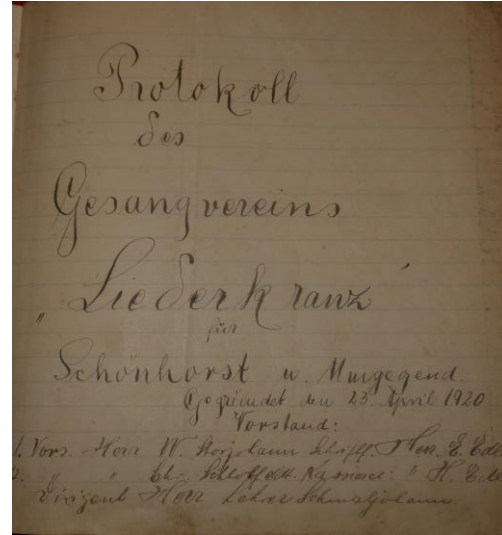 Protokoll
des
Gesangvereins
„Liederkranz“
für
Schönhorst u. Umgegend.
Gegründet den 23. April 1920
Vorstand:
1. Vors. Herr W. Storjohann Schriftf. Herr E.
2. " " Chr. Schlotfeldt. Kassierer: " H.
Dirigent Herr Lehrer Schmaljohann